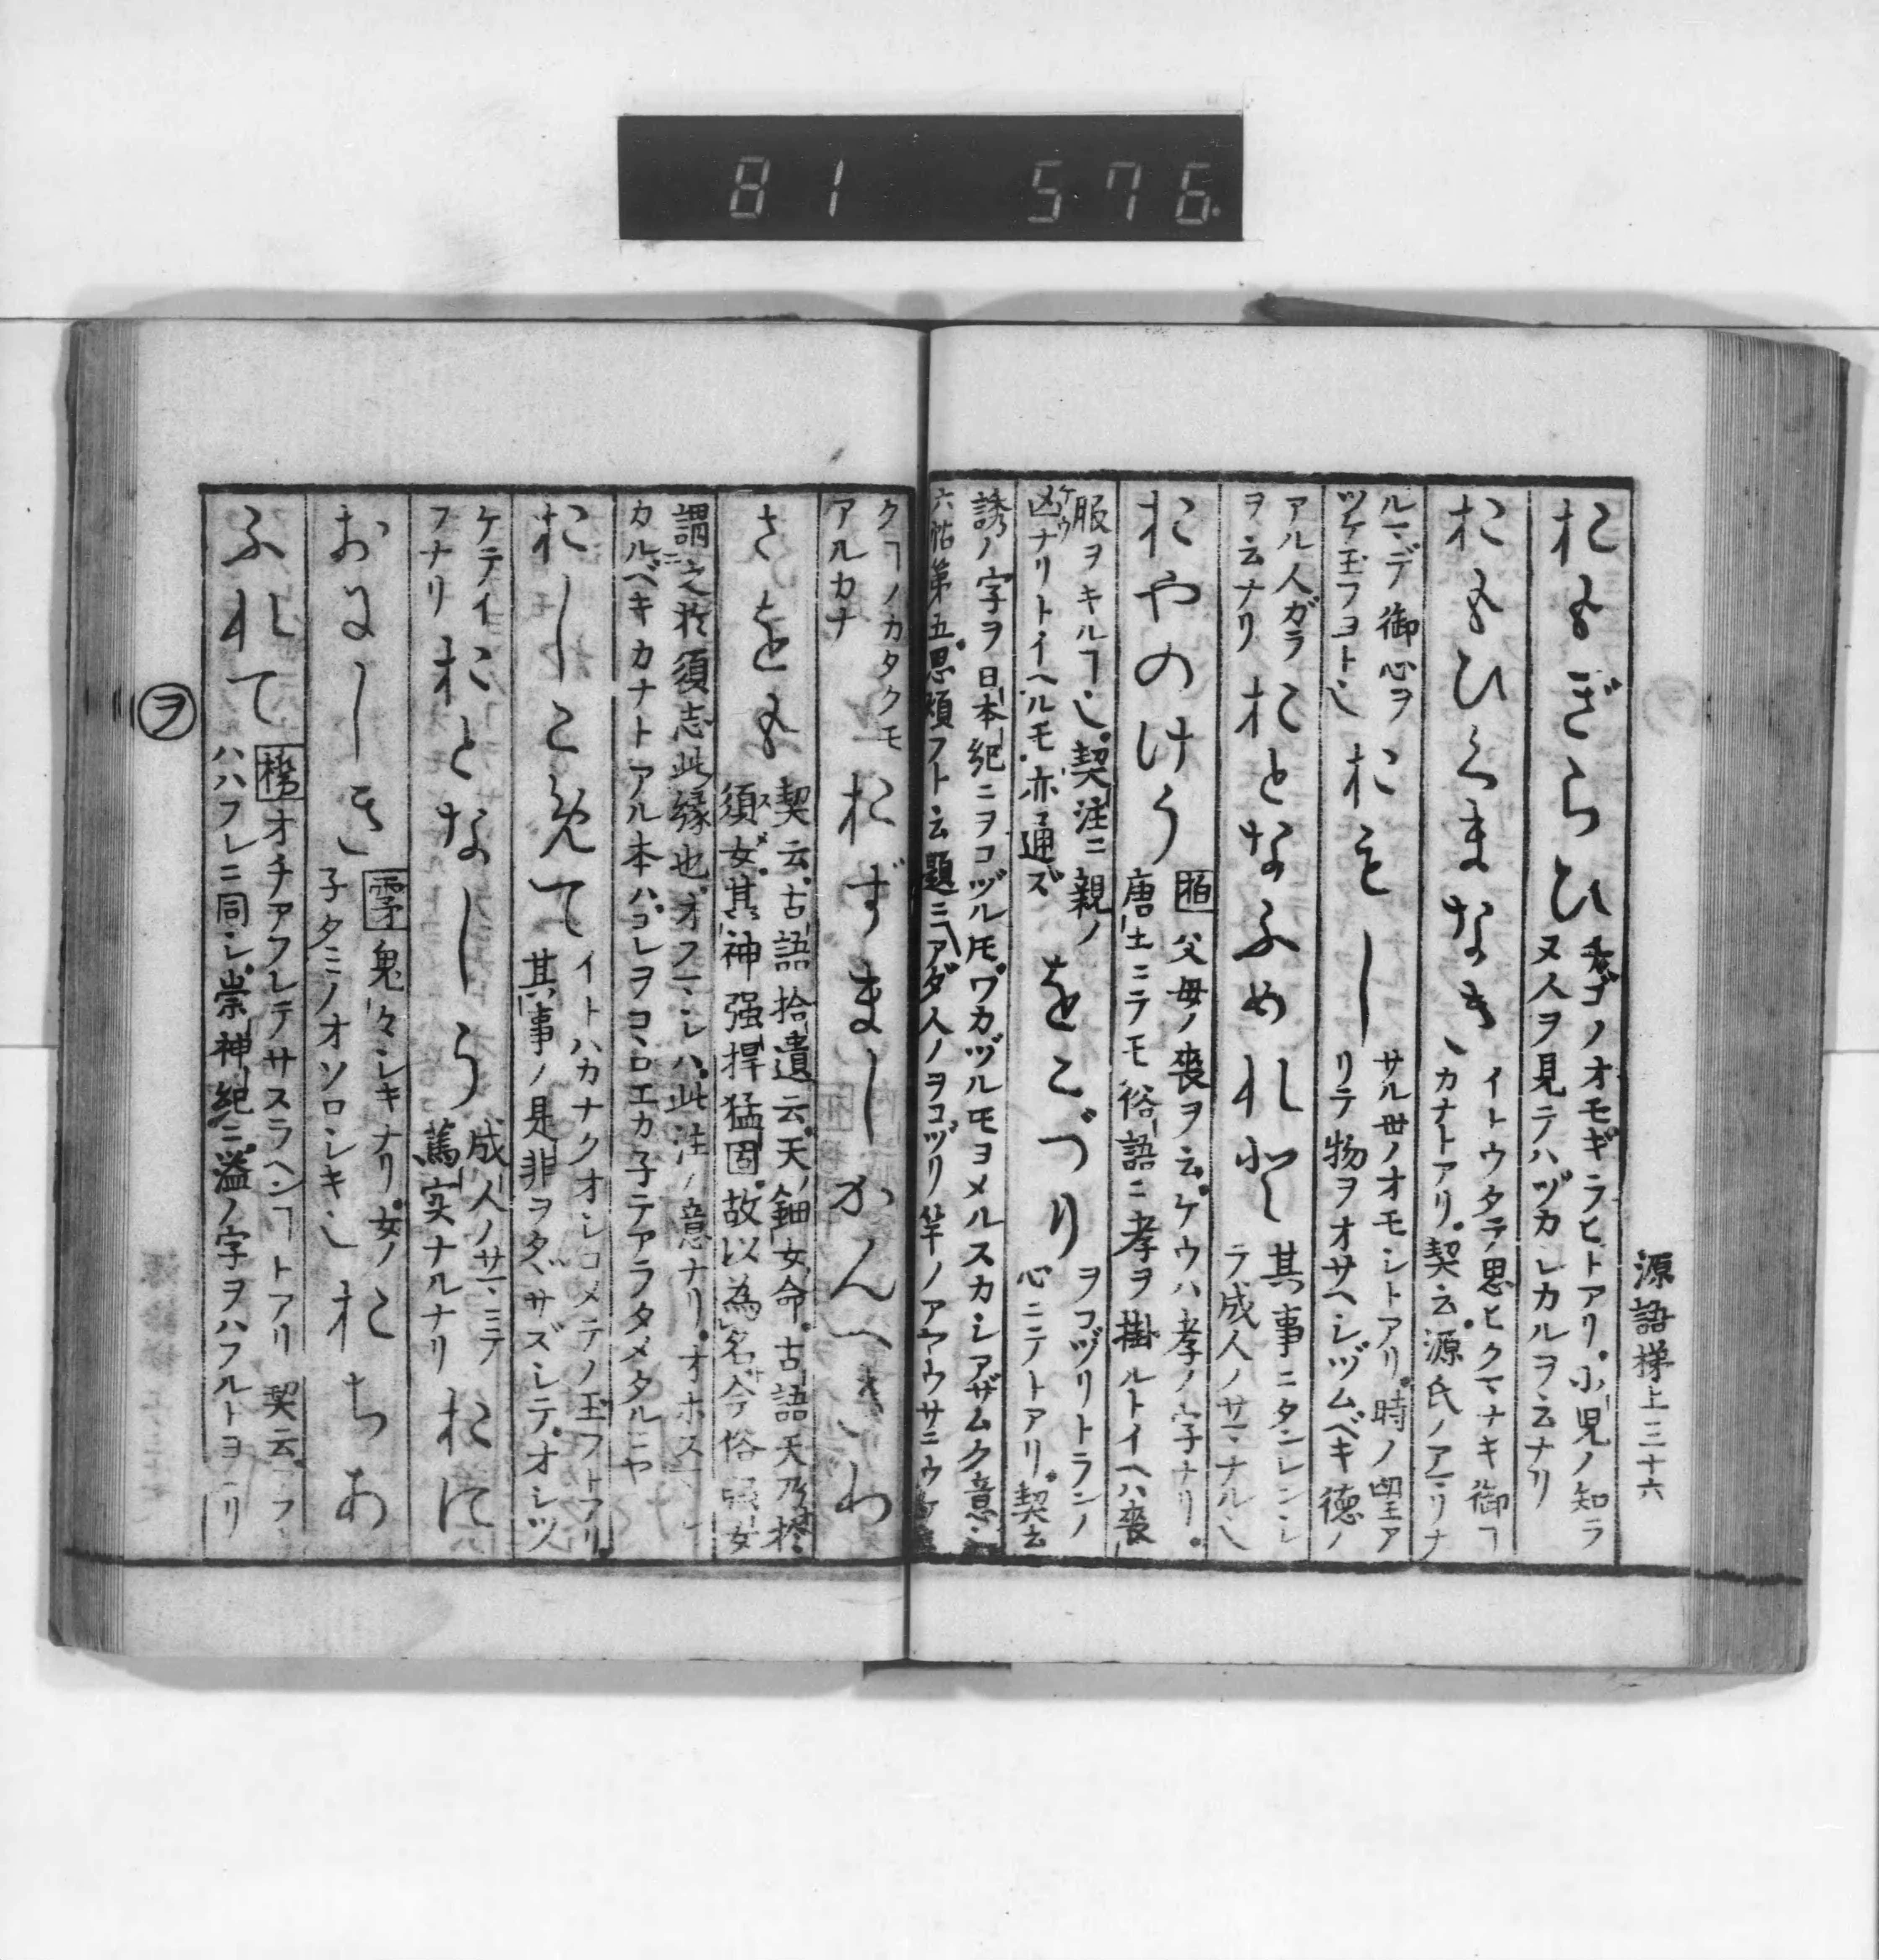 81 576
源語梯上三十六
おもぎらひ
チゴノオモギラヒトアリ。小児ノ知ラ
ヌ人ヲ見テハヅカシカルヲ云ナリ
おもひくまなき
イトウタテ思ヒクマナキ御ヿ
カナトアリ。契云。源氏ノアマリナ
ルマデ御心ヲ
ツケ玉フヨト也
おもし
サル世ノオモシトアリ。時ノ望ア
リテ物ヲオサヘシヅムベキ徳ノ
アル人ガラ
ヲ云ナリ
おとなふめれど
其事ニタンレンシ
ラ成人ノサマナル也
おやのけう
湖 父母ノ喪ヲ云。ケウハ孝ノ字ナリ。
唐土ニテモ俗語ニ孝ヲ掛ルトイヘハ喪
服ヲキルヿ也。契注ニ親ノ
凶ケウナリトイヘルモ亦通ズ
をこづり
ヲコヅリトランノ
心ニテトアリ。契云
誘ノ字ヲ日本紀ニヲコヅルモ。ワカヅルモヨメルスカシアザムク意
六帖第五。思煩フト云題ニ
クヿノカタクモ
アルカナ
おずましかんへきわ
ざをも
契云。古語拾遺云。天鈿女命。古語天乃於
須女。其神強悍猛固。故以為名。今俗強女
謂之於須志此縁也。オフマシハ。此注ノ意ナリ。オホスマシ
カルベキカナトアル本ハ。コレヲコヽロエカ子テアラタメタルニヤ
おしこめて
イトハカナクオシコメテノ玉フトアリ。
其事ノ是非ヲタヾサズシテ。オシツ
ケテイ
フナリ
おとなしう
成人ノサマミア
篤実ナルナリ
おに
おにしき
雫 鬼々シキナリ。女ノ
子タミノオソロシキ也
おちあ
ふれて
橋 オチアフレテサスラヘンヿトアリ 契云。フ
ハハフレニ同シ。崇神紀ニ。溢ノ字ヲハフルトヨリ
ヲ